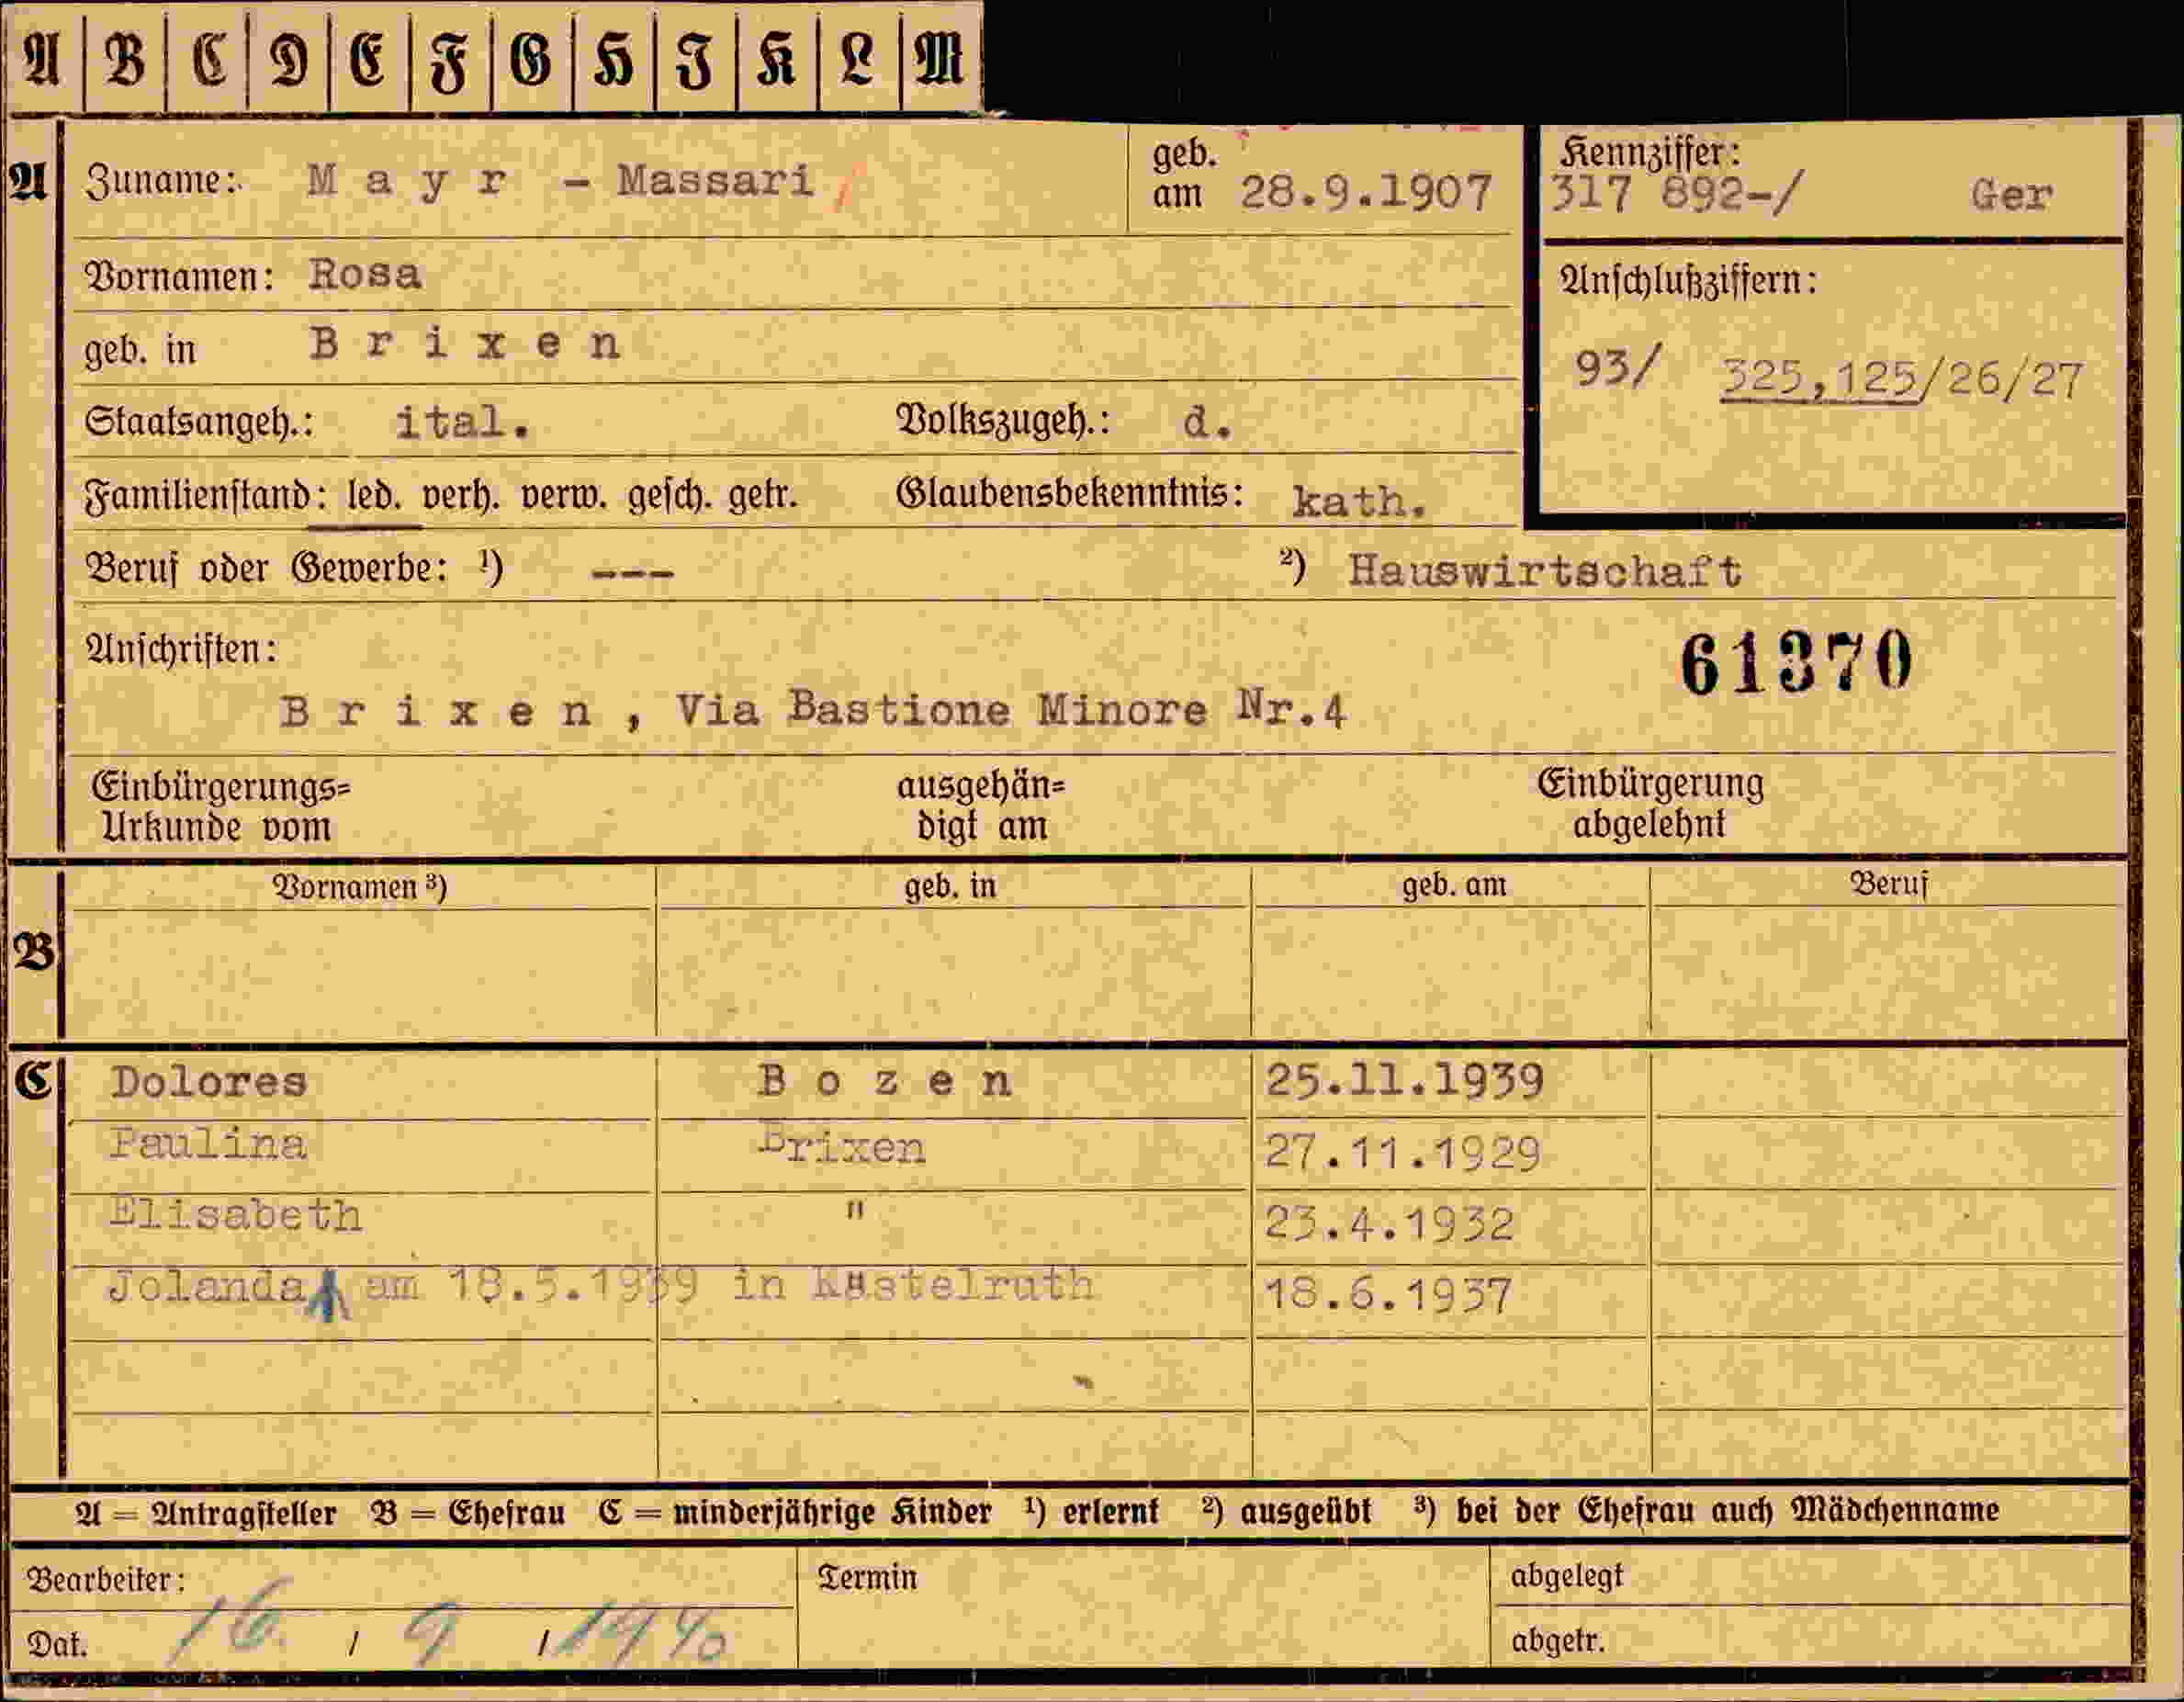 A B C D E F G H I K L M
A Zuname: M a y r - Massari geb. am 28.9.1907 Kennziffer: 317 892-/ Ger
Vornamen: Rosa
geb. in B r i x e n
Anschlußziffern:
93/ 325,125/26/27
Staatsangeh.: ital. Volkszugeh.: d.
Familienstand: led. verh. verw. gesch. getr. Glaubensbekenntnis: kath.
Beruf oder Gewerbe: ¹) --- ²) Hauswirtschaft
Anschriften:
61370
B r i x e n , Via Bastione Minore Nr.4
Einbürgerungs= ausgehän= Einbürgerung
Urkunde vom digt am abgelehnt
Vornamen ³) geb. in geb. am Beruf
B
C Dolores B o z e n 25.11.1939
Paulina Brixen 27.11.1929
Elisabeth " 23.4.1932
Jolanda am 18.5.1939 in Kastelruth 18.6.1937
A = Antragsteller B = Ehefrau C = minderjährige Kinder ¹) erlernt ²) ausgeübt ³) bei der Ehefrau auch Mädchenname
Bearbeiter: Termin abgelegt
Dat. 16 / 9 / 1940 abgetr.